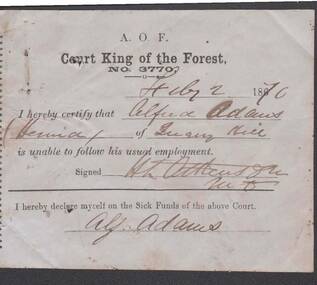 A. O. F.
Court King of the Forest,
No. 3770,
Feby 2 1870
I hereby certify that Alfred Adams
(Hernia) of Quarry Hill
is unable to follow his usual employment.
Signed H L Atkinson
M D
I hereby declare myself on the Sick Funds of the above Court.
Alf. Adams